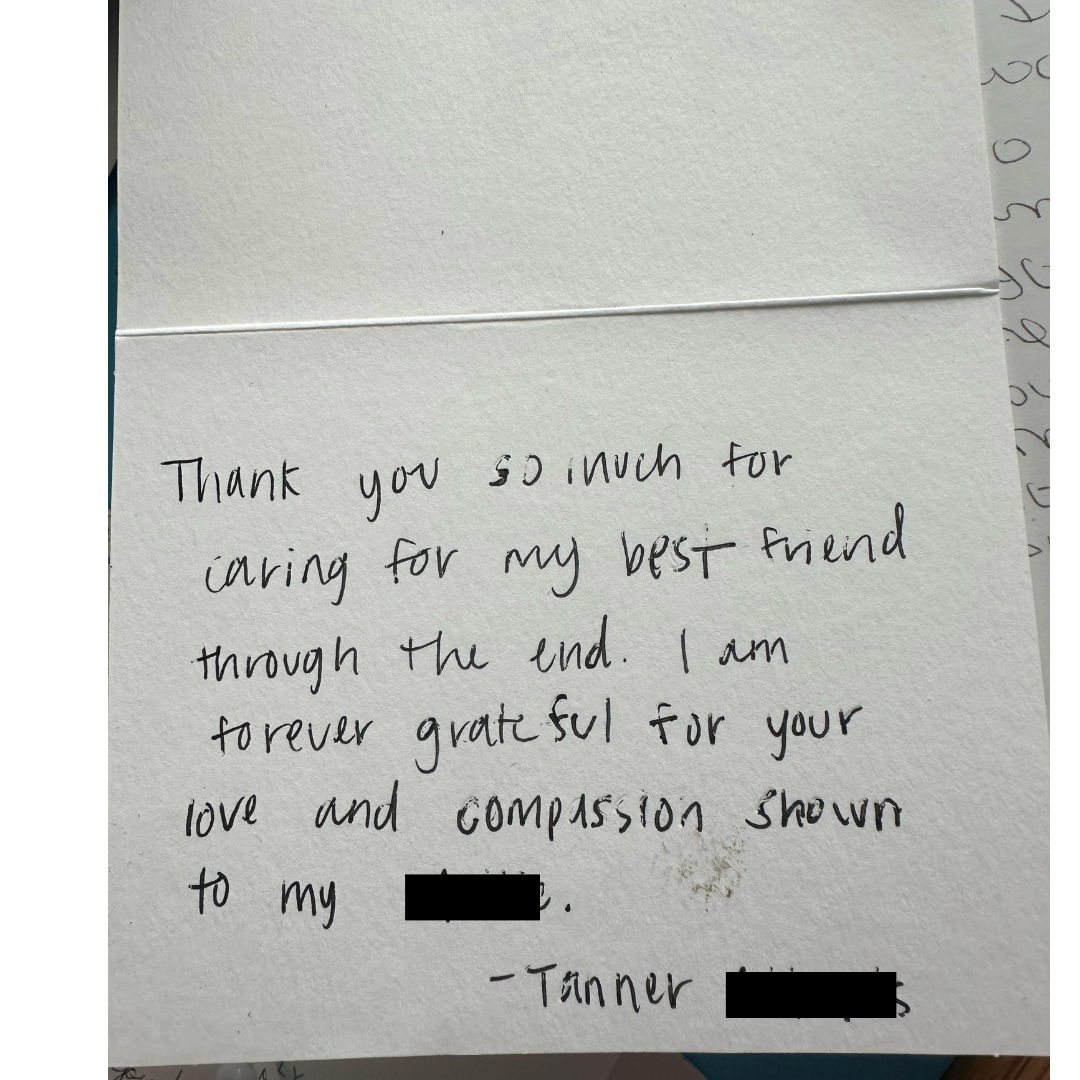 Thank you so much for
caring for my best friend
through the end. I am
forever grateful for your
love and compassion shown
to my
- Tanner